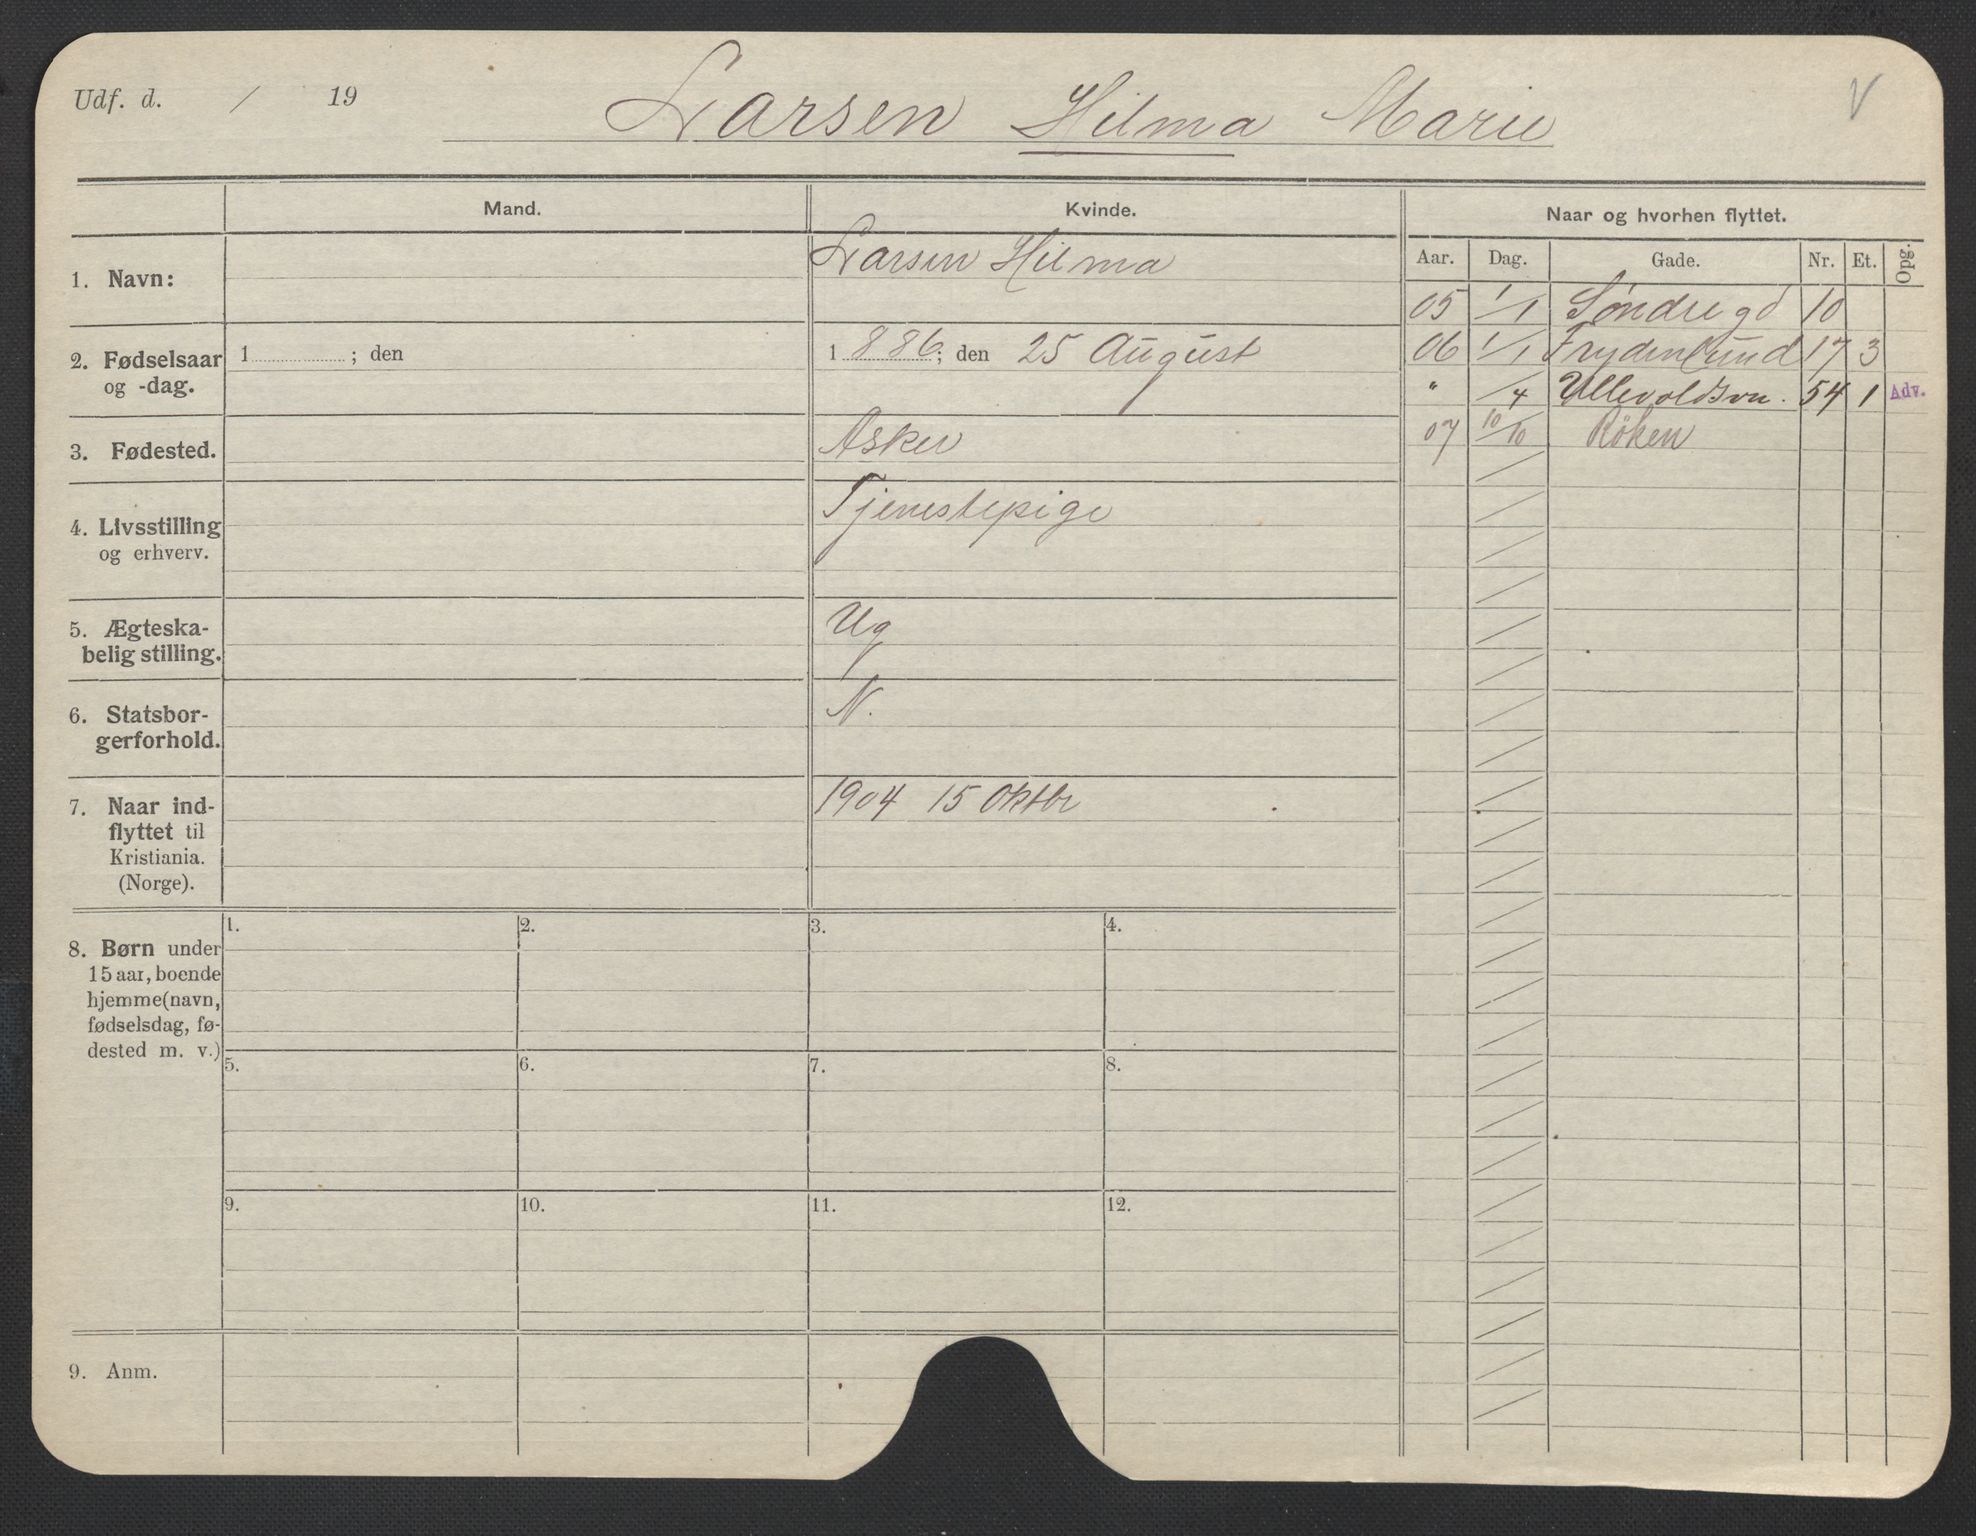 Udf. d. / 19
Larsen Hilma Marie
V
Mand.
Kvinde.
Naar og hvorhen flyttet.
Aar. Dag. Gade. Nr. Et. Opg.
1. Navn:
Larsen Hilma
05 1/1 Søndre gd 10
2. Fødselsaar
og -dag.
1 ; den
1 886; den 25 August
06 1/1 Frydenlund 17 3
" /4 Ullevoldsvn. 54 1 Adv.
3. Fødested.
Asker
07 10/10 Røken
4. Livsstilling
og erhverv.
Tjenestepige
5. Ægteska-
belig stilling.
Ug
6. Statsbor-
gerforhold.
N.
7. Naar ind-
flyttet til
Kristiania.
(Norge).
1904 15 Oktbr
8. Børn under
15 aar, boende
hjemme (navn,
fødselsdag, fø-
dested m. v.)
1. 2. 3. 4.
5. 6. 7. 8.
9. 10. 11. 12.
9. Anm.